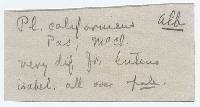 Pl. californicus Alb
Pas. Mcd.
very dif. for luteus
isabel. all over pale.